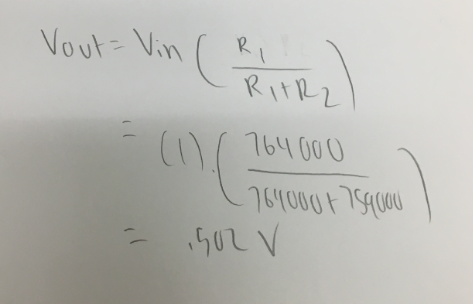 Vout = Vin ( R1 / R1+R2 )
= (1) . ( 764000 / 764000+759000 )
= .502 V